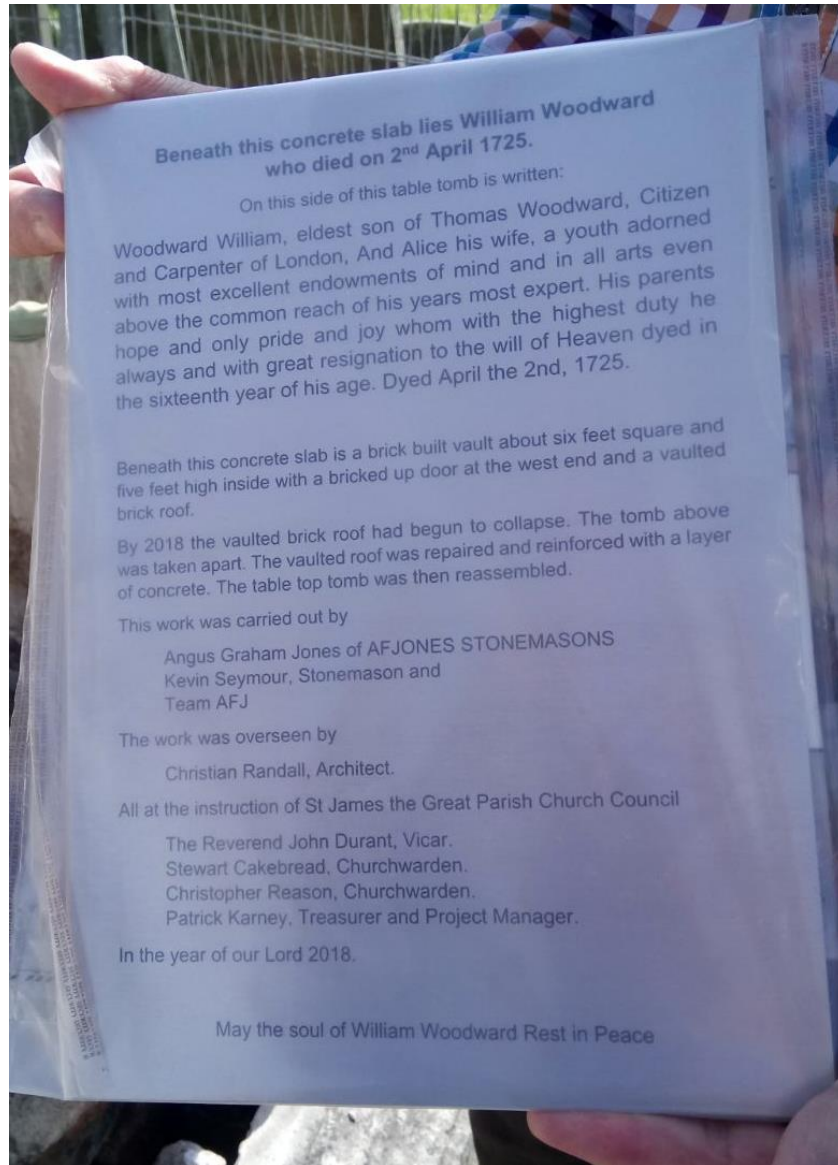 Beneath this concrete slab lies William Woodward
who died on 2nd April 1725.
On this side of this table tomb is written:
Woodward William, eldest son of Thomas Woodward, Citizen
and Carpenter of London, And Alice his wife, a youth adorned
with most excellent endowments of mind and in all arts even
above the common reach of his years most expert. His parents
hope and only pride and joy whom with the highest duty he
always and with great resignation to the will of Heaven dyed in
the sixteenth year of his age. Dyed April the 2nd, 1725.
Beneath this concrete slab is a brick built vault about six feet square and
five feet high inside with a bricked up door at the west end and a vaulted
brick roof.
By 2018 the vaulted brick roof had begun to collapse. The tomb above
was taken apart. The vaulted roof was repaired and reinforced with a layer
of concrete. The table top tomb was then reassembled.
This work was carried out by
Angus Graham Jones of AFJONES STONEMASONS
Kevin Seymour, Stonemason and
Team AFJ
The work was overseen by
Christian Randall, Architect.
All at the instruction of St James the Great Parish Church Council
The Reverend John Durant, Vicar.
Stewart Cakebread, Churchwarden.
Christopher Reason, Churchwarden.
Patrick Karney, Treasurer and Project Manager.
In the year of our Lord 2018.
May the soul of William Woodward Rest in Peace